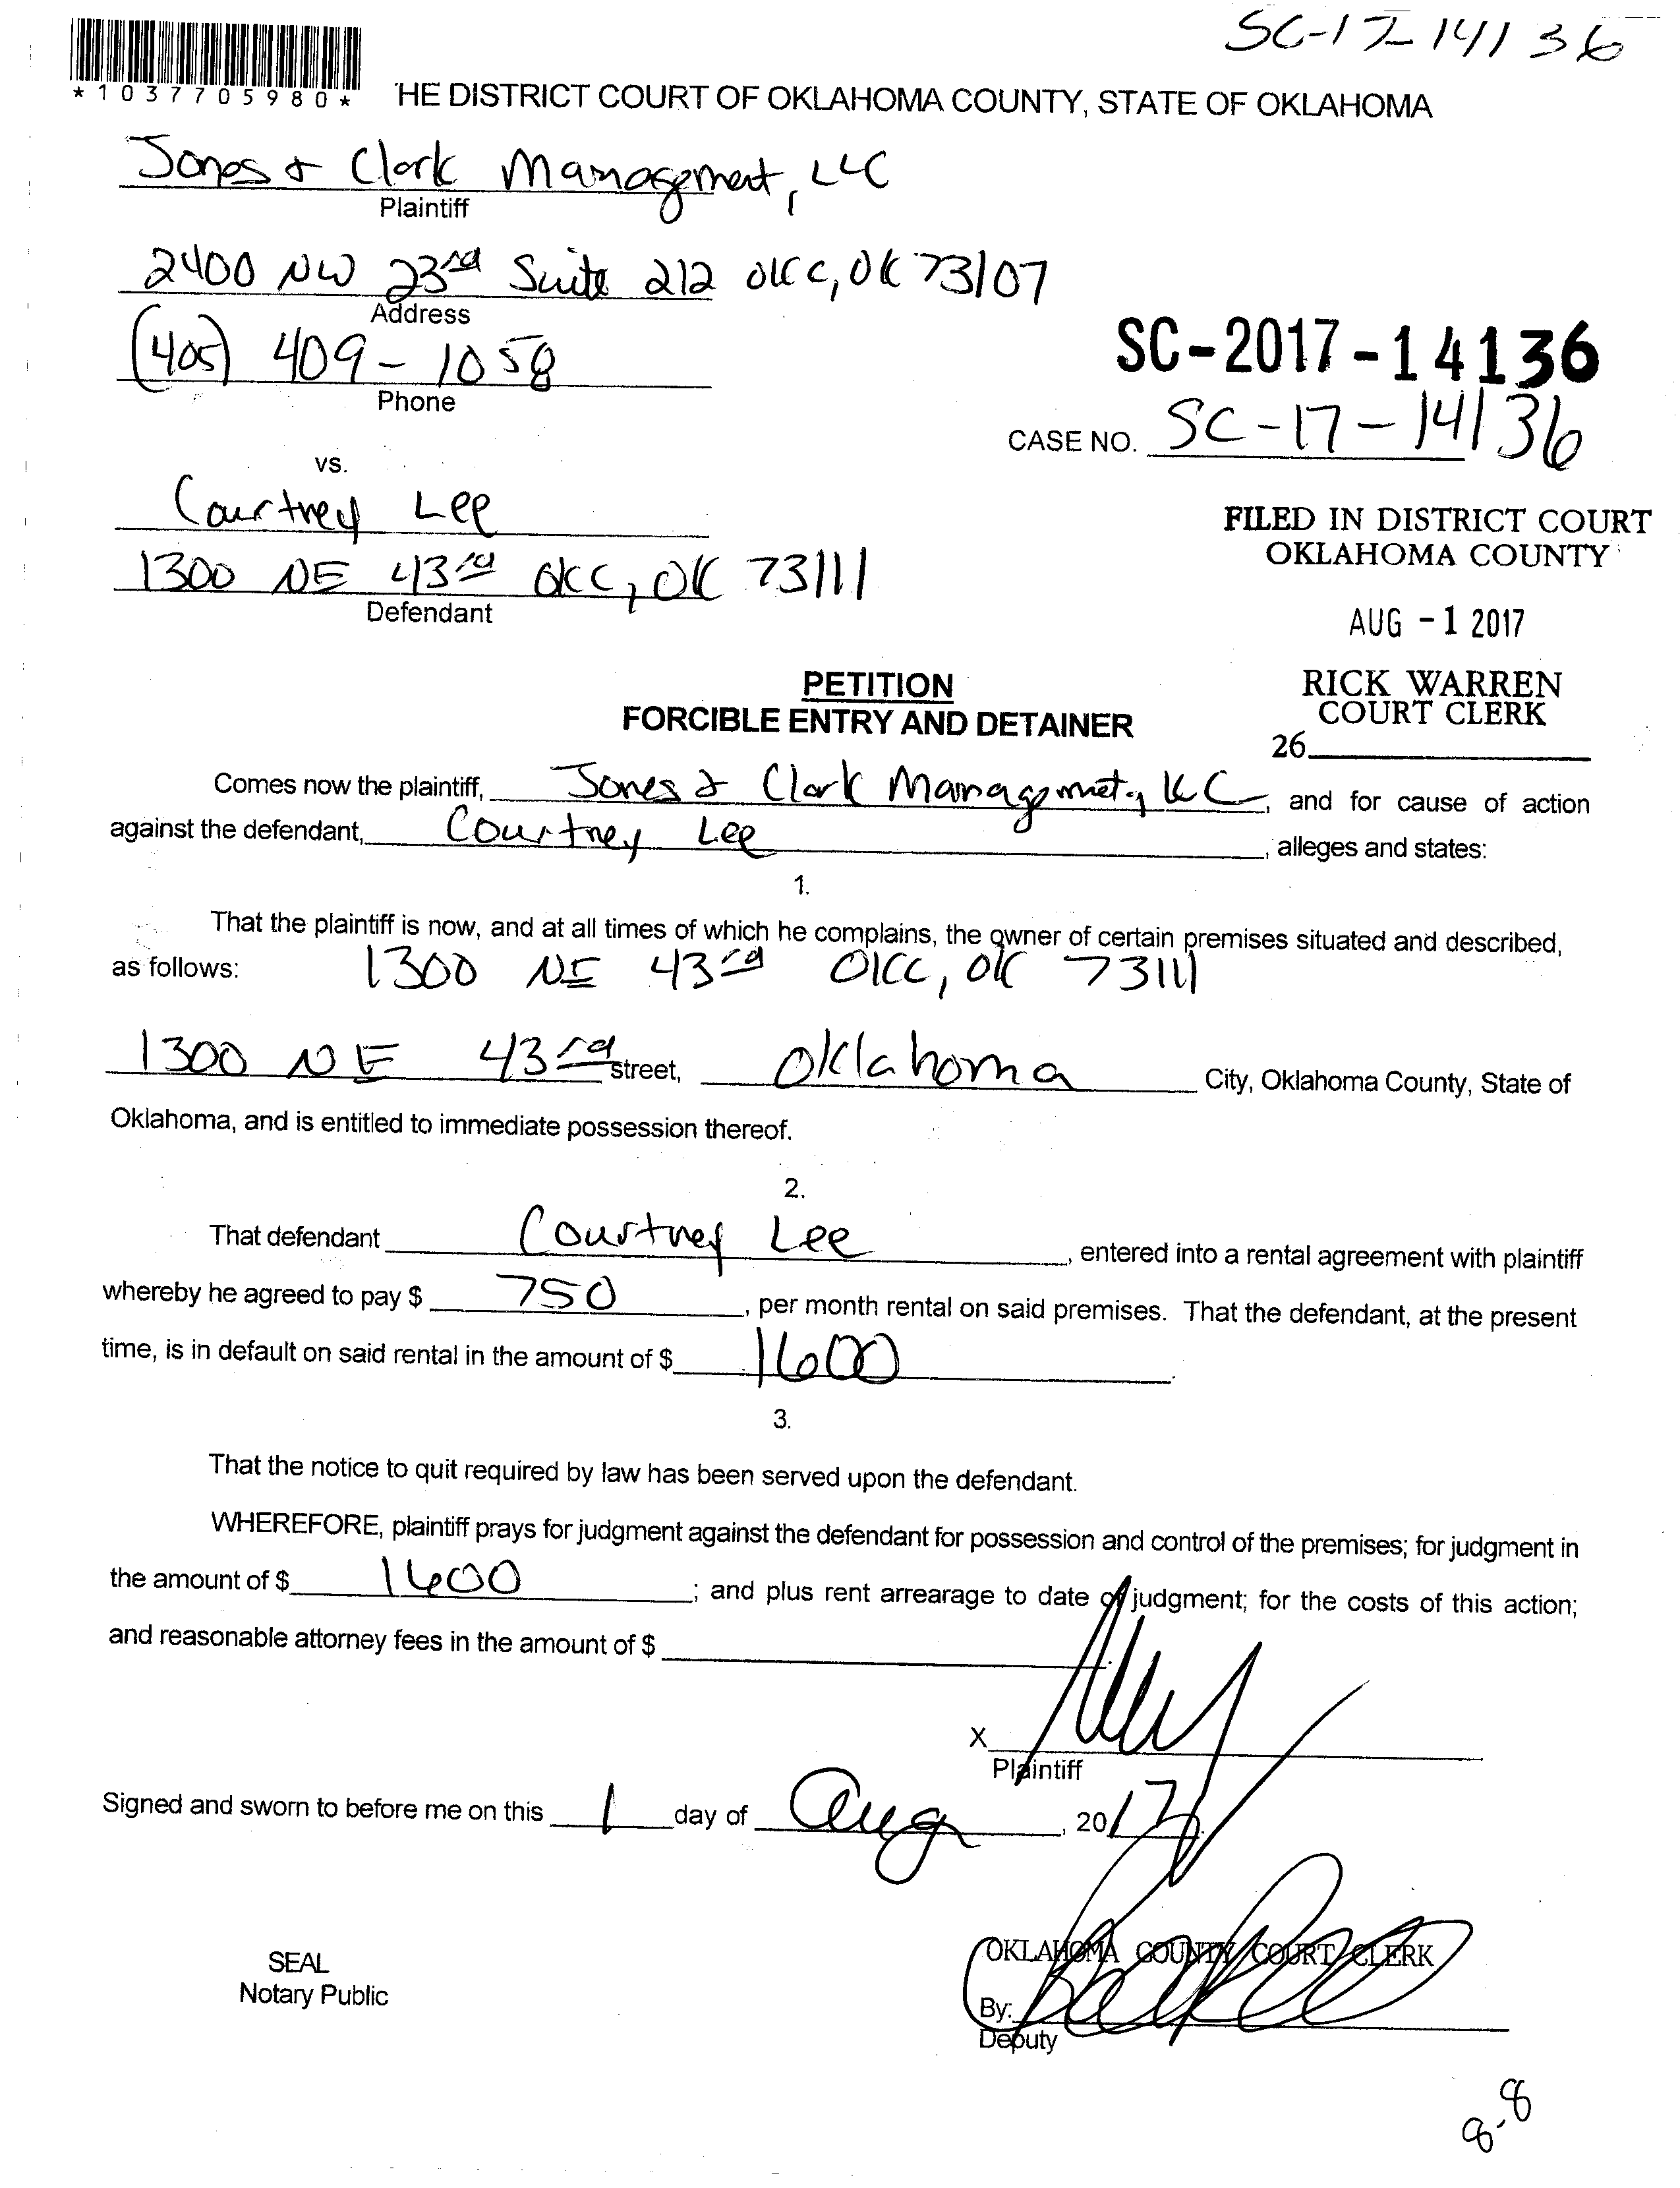 SC-17-14136
*1037705980*
HE DISTRICT COURT OF OKLAHOMA COUNTY, STATE OF OKLAHOMA
Jones & Clark Management, LLC
Plaintiff
2400 NW 23rd Suite 212 OKC, OK 73107
Address
(405) 409-1058
Phone
SC-2017-14136
CASE NO. SC-17-14136
vs.
Courtney Lee
1300 NE 43rd OKC, OK 73111
Defendant
FILED IN DISTRICT COURT
OKLAHOMA COUNTY
AUG -1 2017
RICK WARREN
COURT CLERK
26
PETITION
FORCIBLE ENTRY AND DETAINER
Comes now the plaintiff, Jones & Clark Managemet, LLC, and for cause of action
against the defendant, Courtney Lee, alleges and states:
1.
That the plaintiff is now, and at all times of which he complains, the owner of certain premises situated and described,
as follows: 1300 NE 43rd OKC, OK 73111
1300 NE 43rd street, Oklahoma City, Oklahoma County, State of
Oklahoma, and is entitled to immediate possession thereof.
2.
That defendant Courtney Lee, entered into a rental agreement with plaintiff
whereby he agreed to pay $ 750, per month rental on said premises. That the defendant, at the present
time, is in default on said rental in the amount of $ 1600.
3.
That the notice to quit required by law has been served upon the defendant.
WHEREFORE, plaintiff prays for judgment against the defendant for possession and control of the premises; for judgment in
the amount of $ 1600; and plus rent arrearage to date of judgment; for the costs of this action;
and reasonable attorney fees in the amount of $
X
Plaintiff
Signed and sworn to before me on this 1 day of Aug, 2017.
SEAL
Notary Public
OKLAHOMA COUNTY COURT CLERK
By:
Deputy
8-8